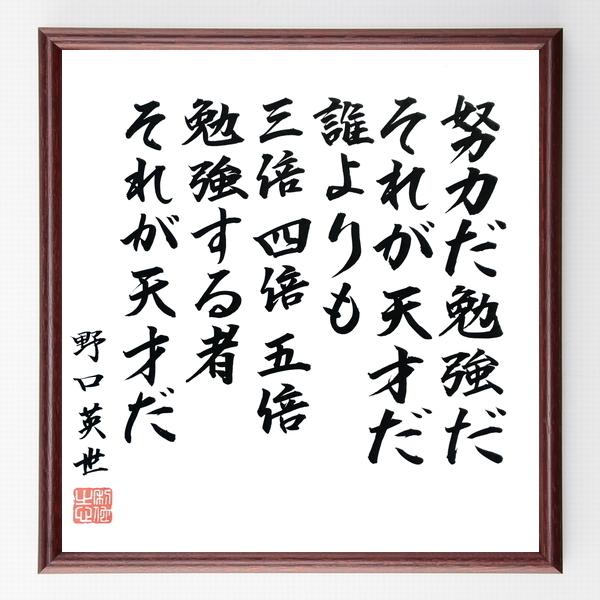 努力だ勉強だ
それが天才だ
誰よりも
三倍 四倍 五倍
勉強する者
それが天才だ
野口英世